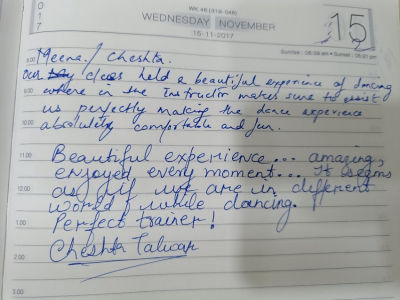 WK 46 (319-046)
WEDNESDAY NOVEMBER 15
15-11-2017
Meena / Cheshta.
Our class held a beautiful experience of dancing
where in the Instructor makes sure to assist
us perfectly making the dance experience
absolutely comfortable and fun.
Beautiful experience... amazing,
enjoyed every moment... It seems
as if we are in different
world while dancing.
Perfect trainer!
Cheshta Talwar
8:00
9:00
10:00
11:00
12:00
1:00
2:00
3:00